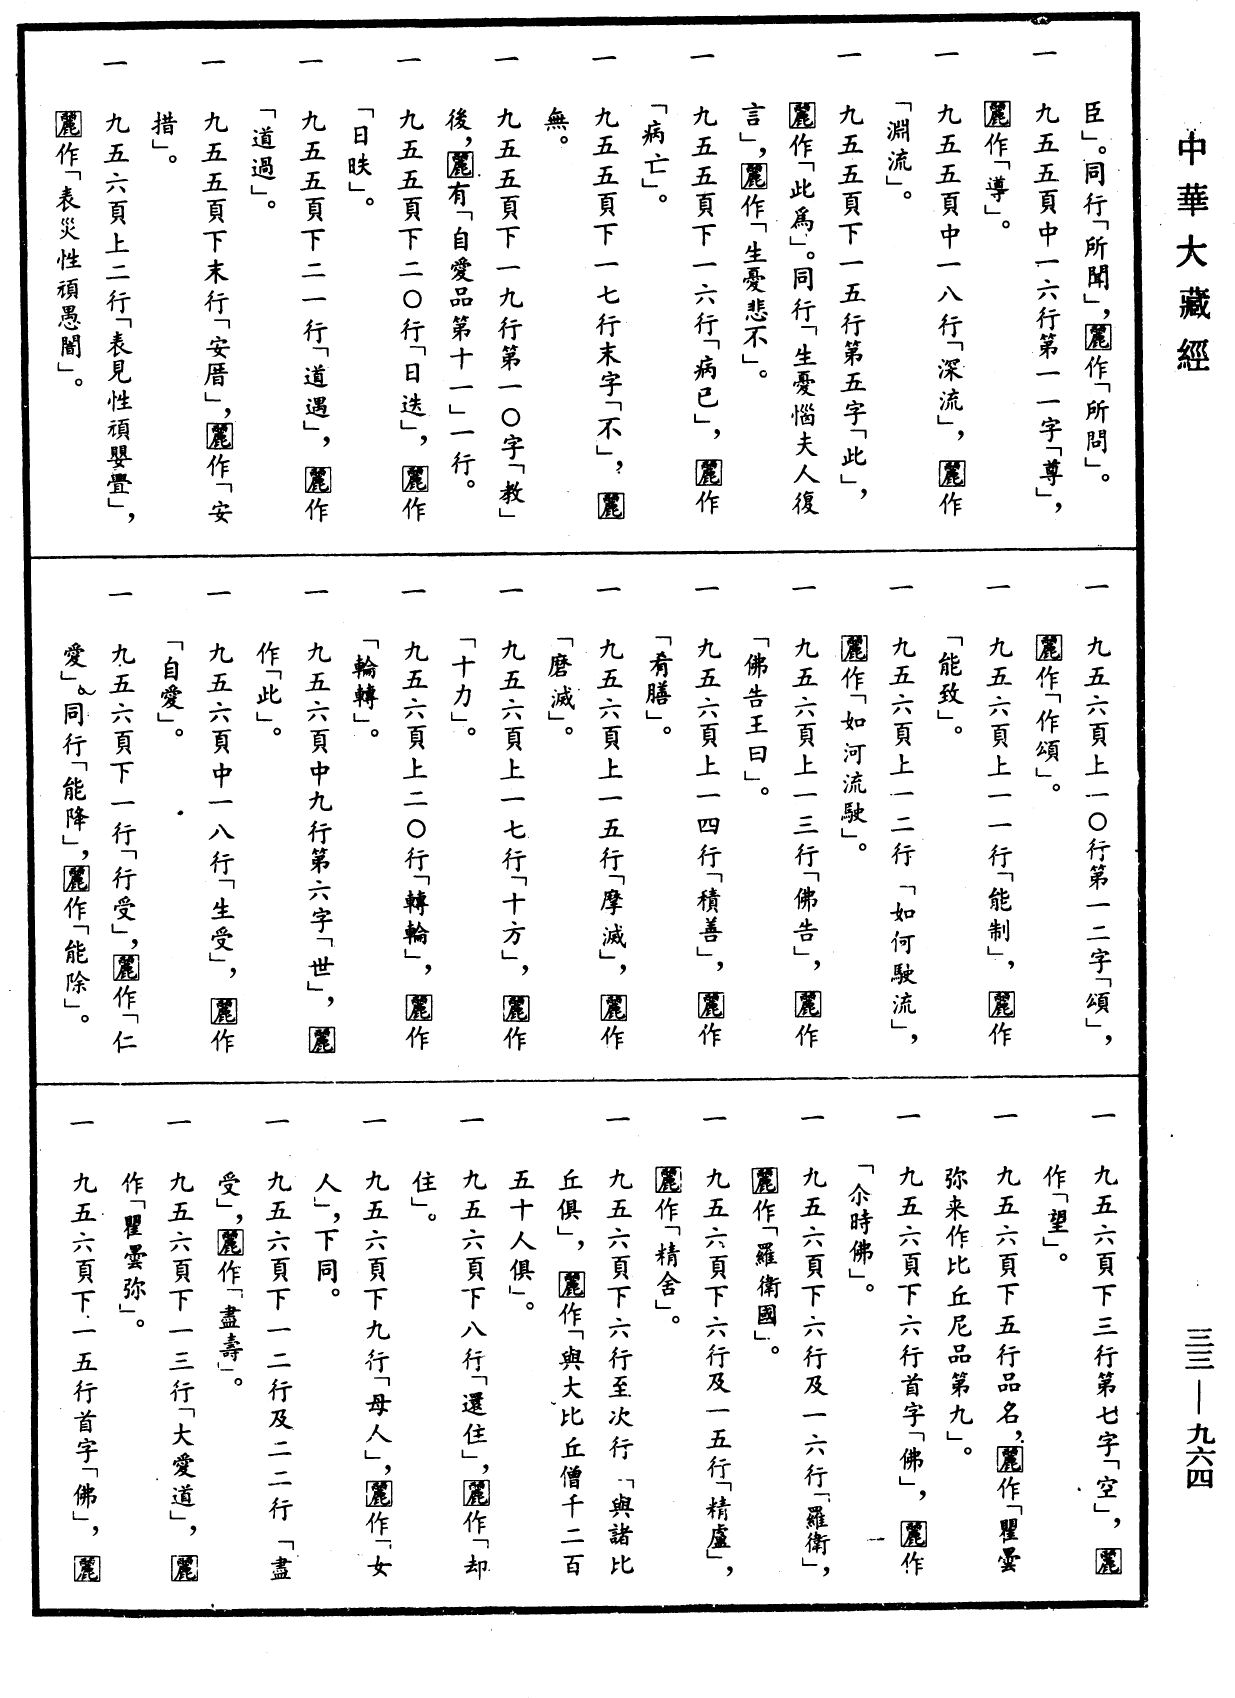 中華大藏經
三三—九六四
臣」。同行「所聞」，麗作「所問」。
一　九五五頁中一六行第一一字「尊」，
麗作「導」。
一　九五五頁中一八行「深流」，麗作
「淵流」。
一　九五五頁下一五行第五字「此」，
麗作「此爲」。同行「生憂惱夫人復
言」，麗作「生憂悲不」。
一　九五五頁下一六行「病已」，麗作
「病亡」。
一　九五五頁下一七行末字「不」，麗
無。
一　九五五頁下一九行第一〇字「教」
後，麗有「自愛品第十一」一行。
一　九五五頁下二〇行「日迭」，麗作
「日昳」。
一　九五五頁下二一行「道遇」，麗作
「道過」。
一　九五五頁下末行「安厝」，麗作「安
措」。
一　九五六頁上二行「表見性頑嬰疊」，
麗作「表災性頑愚闇」。
一　九五六頁上一〇行第一二字「頌」，
麗作「作頌」。
一　九五六頁上一一行「能制」，麗作
「能致」。
一　九五六頁上一二行「如何駛流」，
麗作「如河流駛」。
一　九五六頁上一三行「佛告」，麗作
「佛告王曰」。
一　九五六頁上一四行「積善」，麗作
「肴膳」。
一　九五六頁上一五行「摩滅」，麗作
「磨滅」。
一　九五六頁上一七行「十方」，麗作
「十力」。
一　九五六頁上二〇行「轉輪」，麗作
「輪轉」。
一　九五六頁中九行第六字「世」，麗
作「此」。
一　九五六頁中一八行「生受」，麗作
「自愛」。
一　九五六頁下一行「行受」，麗作「仁
愛」。同行「能降」，麗作「能除」。
一　九五六頁下三行第七字「空」，麗
作「望」。
一　九五六頁下五行品名，麗作「瞿曇
弥来作比丘尼品第九」。
一　九五六頁下六行首字「佛」，麗作
「尒時佛」。
一　九五六頁下六行及一六行「羅衛」，
麗作「羅衛國」。
一　九五六頁下六行及一五行「精盧」，
麗作「精舍」。
一　九五六頁下六行至次行「與諸比
丘俱」，麗作「與大比丘僧千二百
五十人俱」。
一　九五六頁下八行「還住」，麗作「却
住」。
一　九五六頁下九行「母人」，麗作「女
人」，下同。
一　九五六頁下一二行及二二行「盡
受」，麗作「盡壽」。
一　九五六頁下一三行「大愛道」，麗
作「瞿曇弥」。
一　九五六頁下一五行首字「佛」，麗